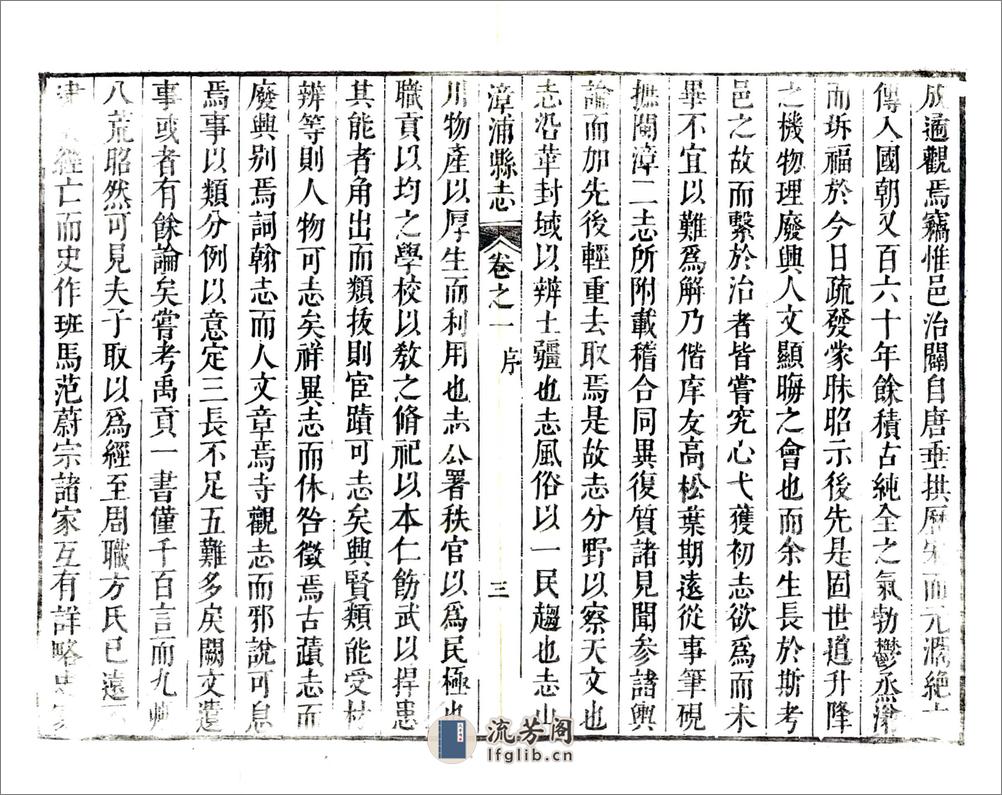 成適觀焉竊惟邑治闢自唐垂拱歷宋而元湮絕
傳人國朝又百六十年餘積古純全之氣勃鬱烝瀹
而坼福於今日疏發蒙昧昭示後先是固世道升降
之機物理廢興人文顯晦之會也而余生長於斯考
邑之故而繫於治者皆嘗究心弋獲初志欲爲而未
畢不宜以難爲解乃偕庠友高松葉期遠從事筆硯
摭閩漳二志所附載稽合同異復質諸見聞參諸輿
論而加先後輕重去取焉是故志分野以察天文也
志沿革封域以辨土疆也志風俗以一民趨也志山
漳浦縣志 卷之一 序 三
川物產以厚生而利用也志公署秩官以爲民極也
職貢以均之學校以敎之脩祀以本仁飭武以捍患
其能者角出而類拔則宦蹟可志矣興賢類能受材
辨等則人物可志矣祥異志而休咎徵焉古蹟志而
廢興别焉詞翰志而人文章焉寺觀志而邪說可息
焉事以類分例以意定三長不足五難多矣闕文遺
事或者有餘論矣嘗考禹貢一書僅千百言而九州
八荒昭然可見夫子取以爲經至周職方氏已遠
經亡而史作班馬范蔚宗諸家互有詳略
流芳阁
lfglib.cn